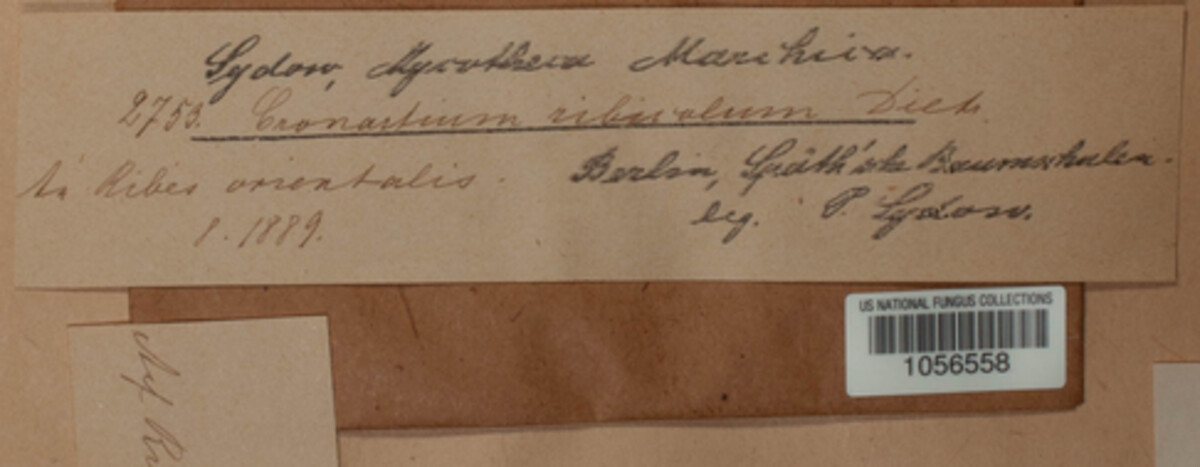 Sydow, Mycotheca Marchica.
2753. Cronartium ribicolum Dietr.
An Ribes orientalis.
8. 1889.
Berlin, Späth'sche Baumschulen.
leg. P. Sydow.
US NATIONAL FUNGUS COLLECTIONS
1056558
Auf